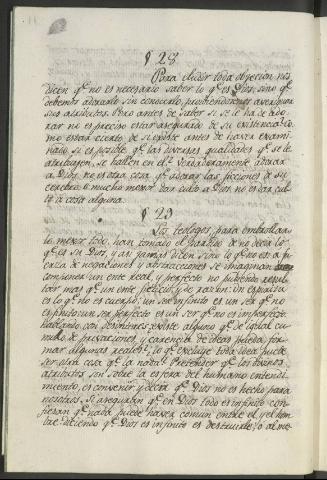 § 28
Para eludir toda objecion nos
dicen q.e no es necesario saber lo q.e es Dios, sino q.e
debemos adorarlo sin conocerlo, prohibiendonos averiguar
sus atributos. Pero antes de saber si se le ha de ado-
rar ni es preciso estar asegurado de su existencia? Co-
mo estar cierto de si existe antes de haver exami-
nado si es posible q.e las diversas qualidades q.e se le
atribuyen, se hallen en el? Verdaderamente adorar
a Dios no es otra cosa q.e adorar las ficciones de su
cerebro, o mucho menor, dar culto a Dios no es dar cul-
to a cosa alguna.
§ 29
Los teologos para embrollar
lo menor todo, han tomado el partido de no decir lo
q.e es su Dios, y asi jamas dicen sino lo q.e no es: a fu-
erza de negaciones y abstracciones se imaginan
componer un ente real, y perfecto no pudiendo resul-
tar mas q.e un ente ficticio, y de razon: Un espiritu
es lo q.e no es cuerpo; un ser infinito es un ser q.e no
es finito; un ser perfecto es un ser q.e no es imperfecto.
hablando con desinteres, existe alguno q.e de igual cu-
mulo de privaciones, y carencia de ideas pueda for-
mar algunas reales? lo q.e excluye toda idea puede
ser otra cosa q.e la nada? Pretender q.e los divinos
atributos son sobre la esfera del humano entendi-
miento, es convenir, y decir q.e Dios no es hecho para
nosotros. Si aseguran q.e en Dios todo es infinito con-
fiesan q.e nada puede haver comun entre el y el hom-
bre: diciendo q.e Dios es infinito es destruirle; o al me-